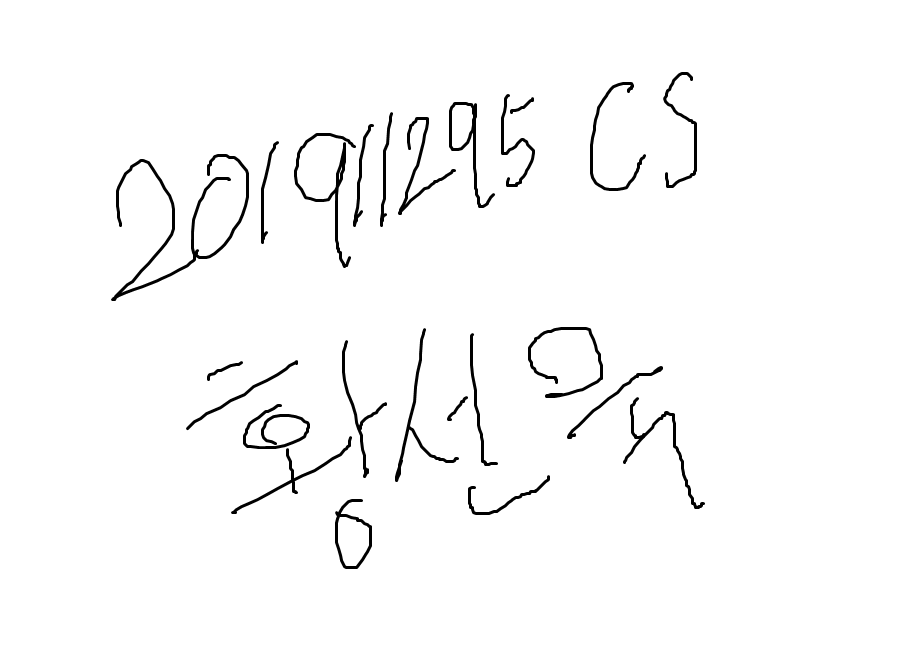 201911295 CS
황선욱